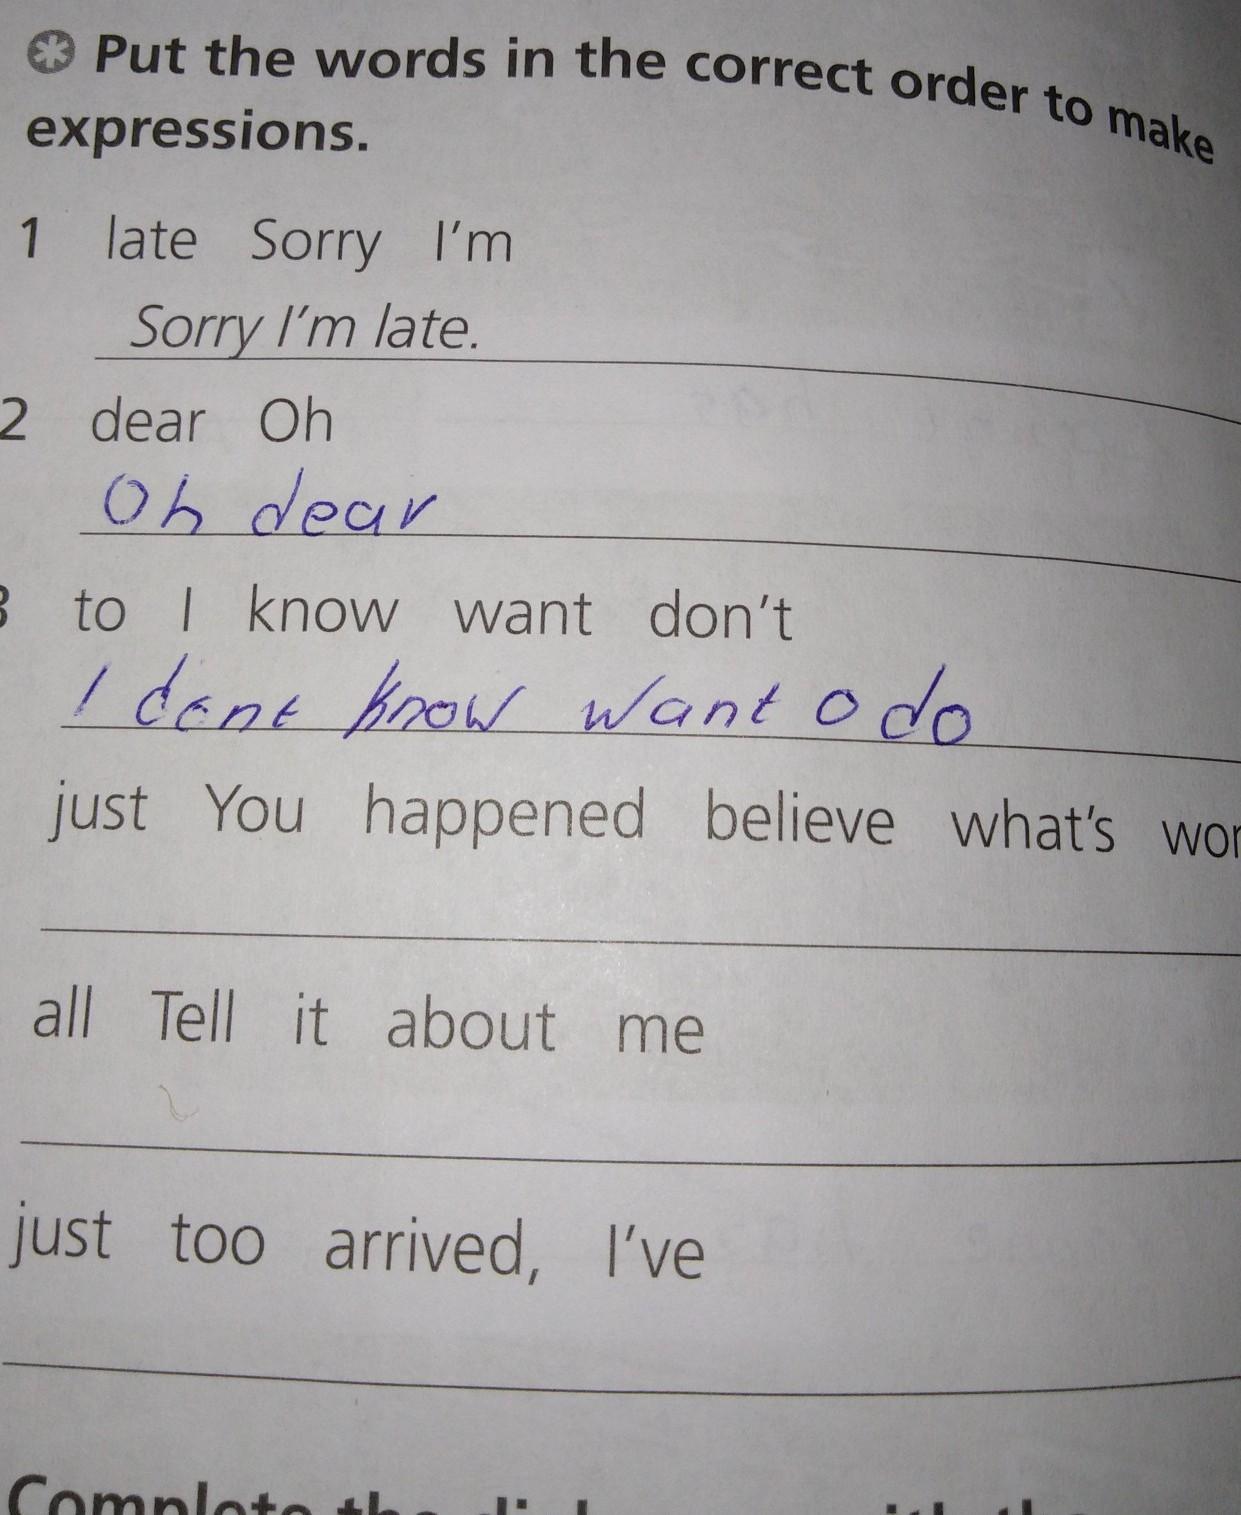 Put the words in the correct order to make
expressions.
1 late Sorry I'm
Sorry I'm late.
2 dear Oh
Oh dear
3 to I know want don't
I dont know want o do
just You happened believe what's
all Tell it about me
just too arrived, I've
Complete the